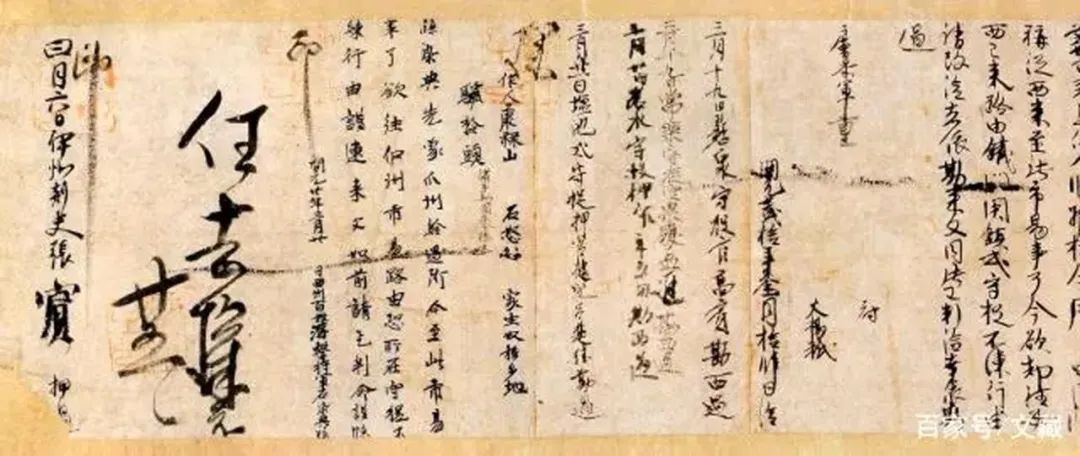 稱從西來至此市易事了今欲却往安
西已來路由鐵門關鎮戍守捉不練行由
請改給者依勘來文同此已判給幸依勘
過
府
戶曹參軍亶
史楊祗
開元貳拾年叁月拾肆日給
三月十九日懸泉守捉官高賓勘西過
三月十九日常樂守捉官果毅孟進勘西過
三月廿日苦水守捉押官年五用勘西過
三月廿一日鹽池戍守捉押官健兒呂楚珪勘過
作人康祿山 石怒忿 家生奴移多地
驢拾頭
牒染典先蒙瓜州給過所今至此市易
事了欲往伊州市易路由恐所在守捉不
練行由謹連來文如前請乞判命謹牒
開元廿年三月廿 日西州百姓游擊將軍石染典牒
印
任去琛示
廿五日
印
四月六日伊州刺史張賓 押過
百家号/文藏